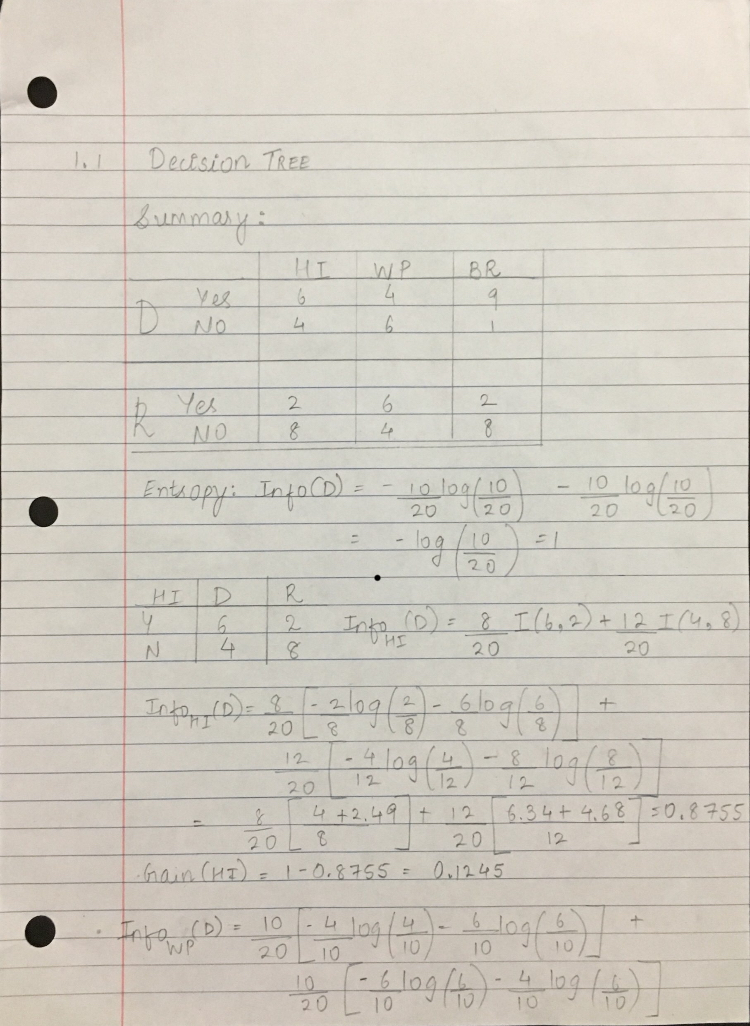 1.1 Decision TREE
Summary:
HI WP BR
D Yes 6 4 9
NO 4 6 1
R Yes 2 6 2
NO 8 4 8
Entropy: Info(D) = - 10/20 log(10/20) - 10/20 log(10/20)
= - log(10/20) = 1
HI D R
Y 6 2 Info_HI(D) = 8/20 I(6,2) + 12/20 I(4,8)
N 4 8
Info_HI(D) = 8/20 [-2/8 log(2/8) - 6/8 log(6/8)] +
12/20 [-4/12 log(4/12) - 8/12 log(8/12)]
= 8/20 [4+2.49/8] + 12/20 [6.34+4.68/12] = 0.8755
Gain(HI) = 1-0.8755 = 0.1245
Info_WP(D) = 10/20 [-4/10 log(4/10) - 6/10 log(6/10)] +
10/20 [-6/10 log(6/10) - 4/10 log(6/10)]